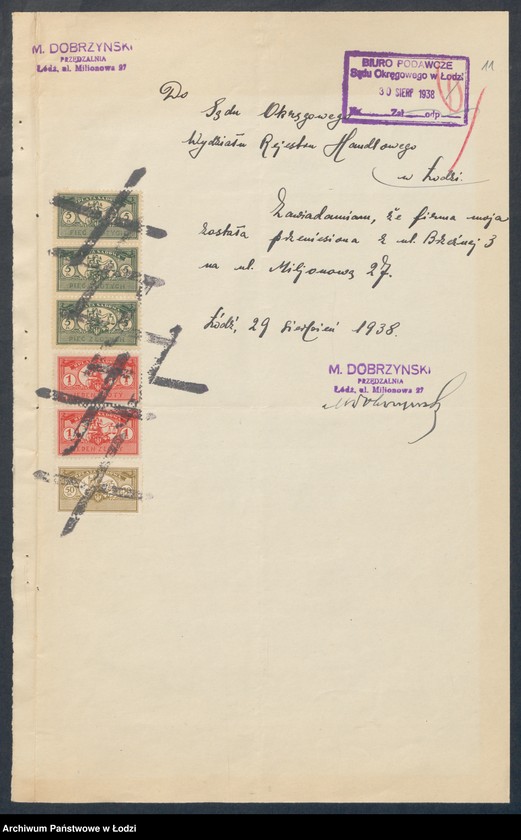 M. DOBRZYNSKI
PRZĘDZALNIA
Łódź, ul. Milionowa 27
BIURO PODAWCZE
Sądu Okręgowego w Łodzi
30 SIERP 1938
Zał. odp.
11
Do
Sądu Okręgowego
Wydziału Rejestru Handlowego
w Łodzi.
Zawiadamiam, że firma moja
została przeniesiona z ul. Brzeźnej 3
na ul. Miljonową 27.
Łódź, 29 sierpień 1938.
M. DOBRZYNSKI
PRZĘDZALNIA
Łódź, ul. Milionowa 27
5 5
PIĘĆ ZŁOTYCH
5 5
PIĘĆ ZŁOTYCH
5 5
1 1
1 1
50
Archiwum Państwowe w Łodzi